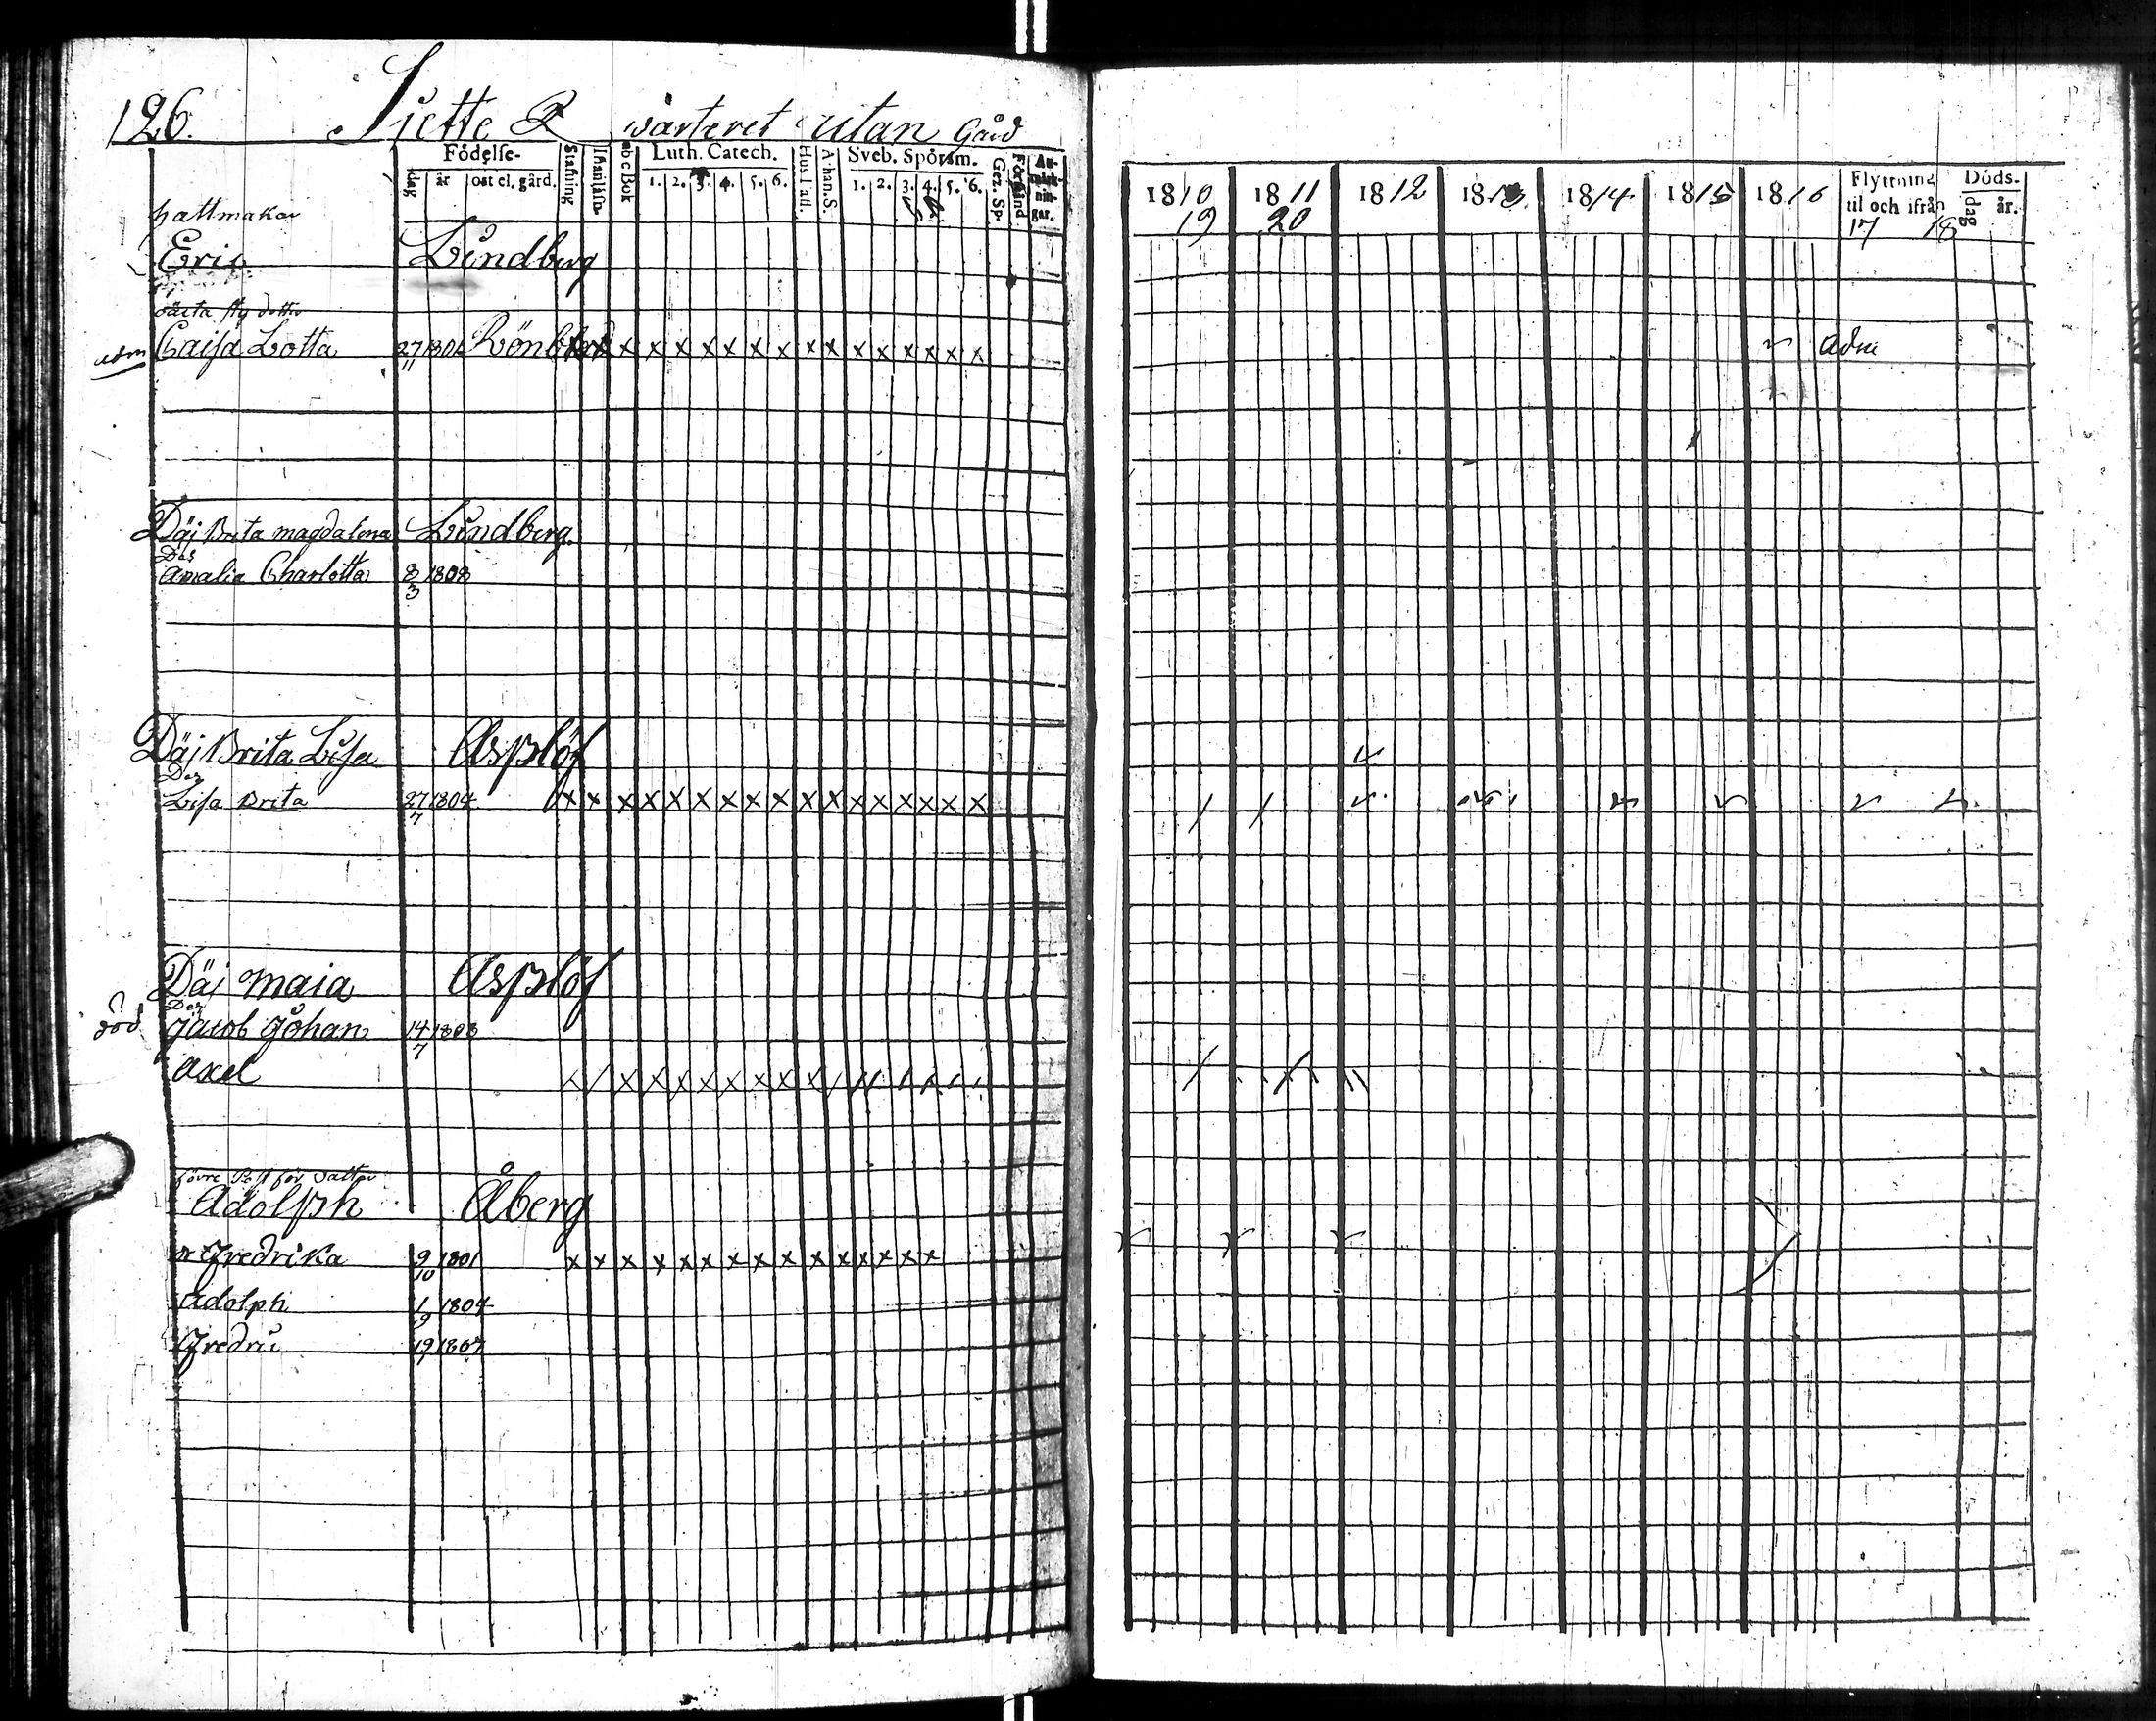 126. Siette Qwarteret utan Gård
Födelse- Stafning Innanläsn. abc Bok Luth. Catech. Husl. tafl. Athan. S. Sveb. Spörsm. Gez. Sp. Förstånd Anmärkningar.
dag år ost el. gård. 1. 2. 3. 4. 5. 6. 1. 2. 3. 4. 5. 6.
1810 1811 1812 1813 1814 1815 1816 Flyttning til och ifrån Döds- dag år.
19 20 17 18
Hattmakar
Eric Lundberg
dotter
adm Caisa Lotta 27/11 180 x x x x x x x x x x x x x x x x x adm
Däj Brita Magdalena Lundberg
Des
Amalia Charlotta 8/3 1808
Däj Brita Lisa Asplöf
Des
Lisa Brita 27/7 1804 x x x x x x x x x x x x x x x x x
Däj Maja Asplöf
Des
död Jacob Johan 14/7 1803
Axel
Adolph Åberg
Fredrika 9/10 1801 x x x x x x x x x x x x x x x
Adolph 1/9 1804
Fredric 19 1807